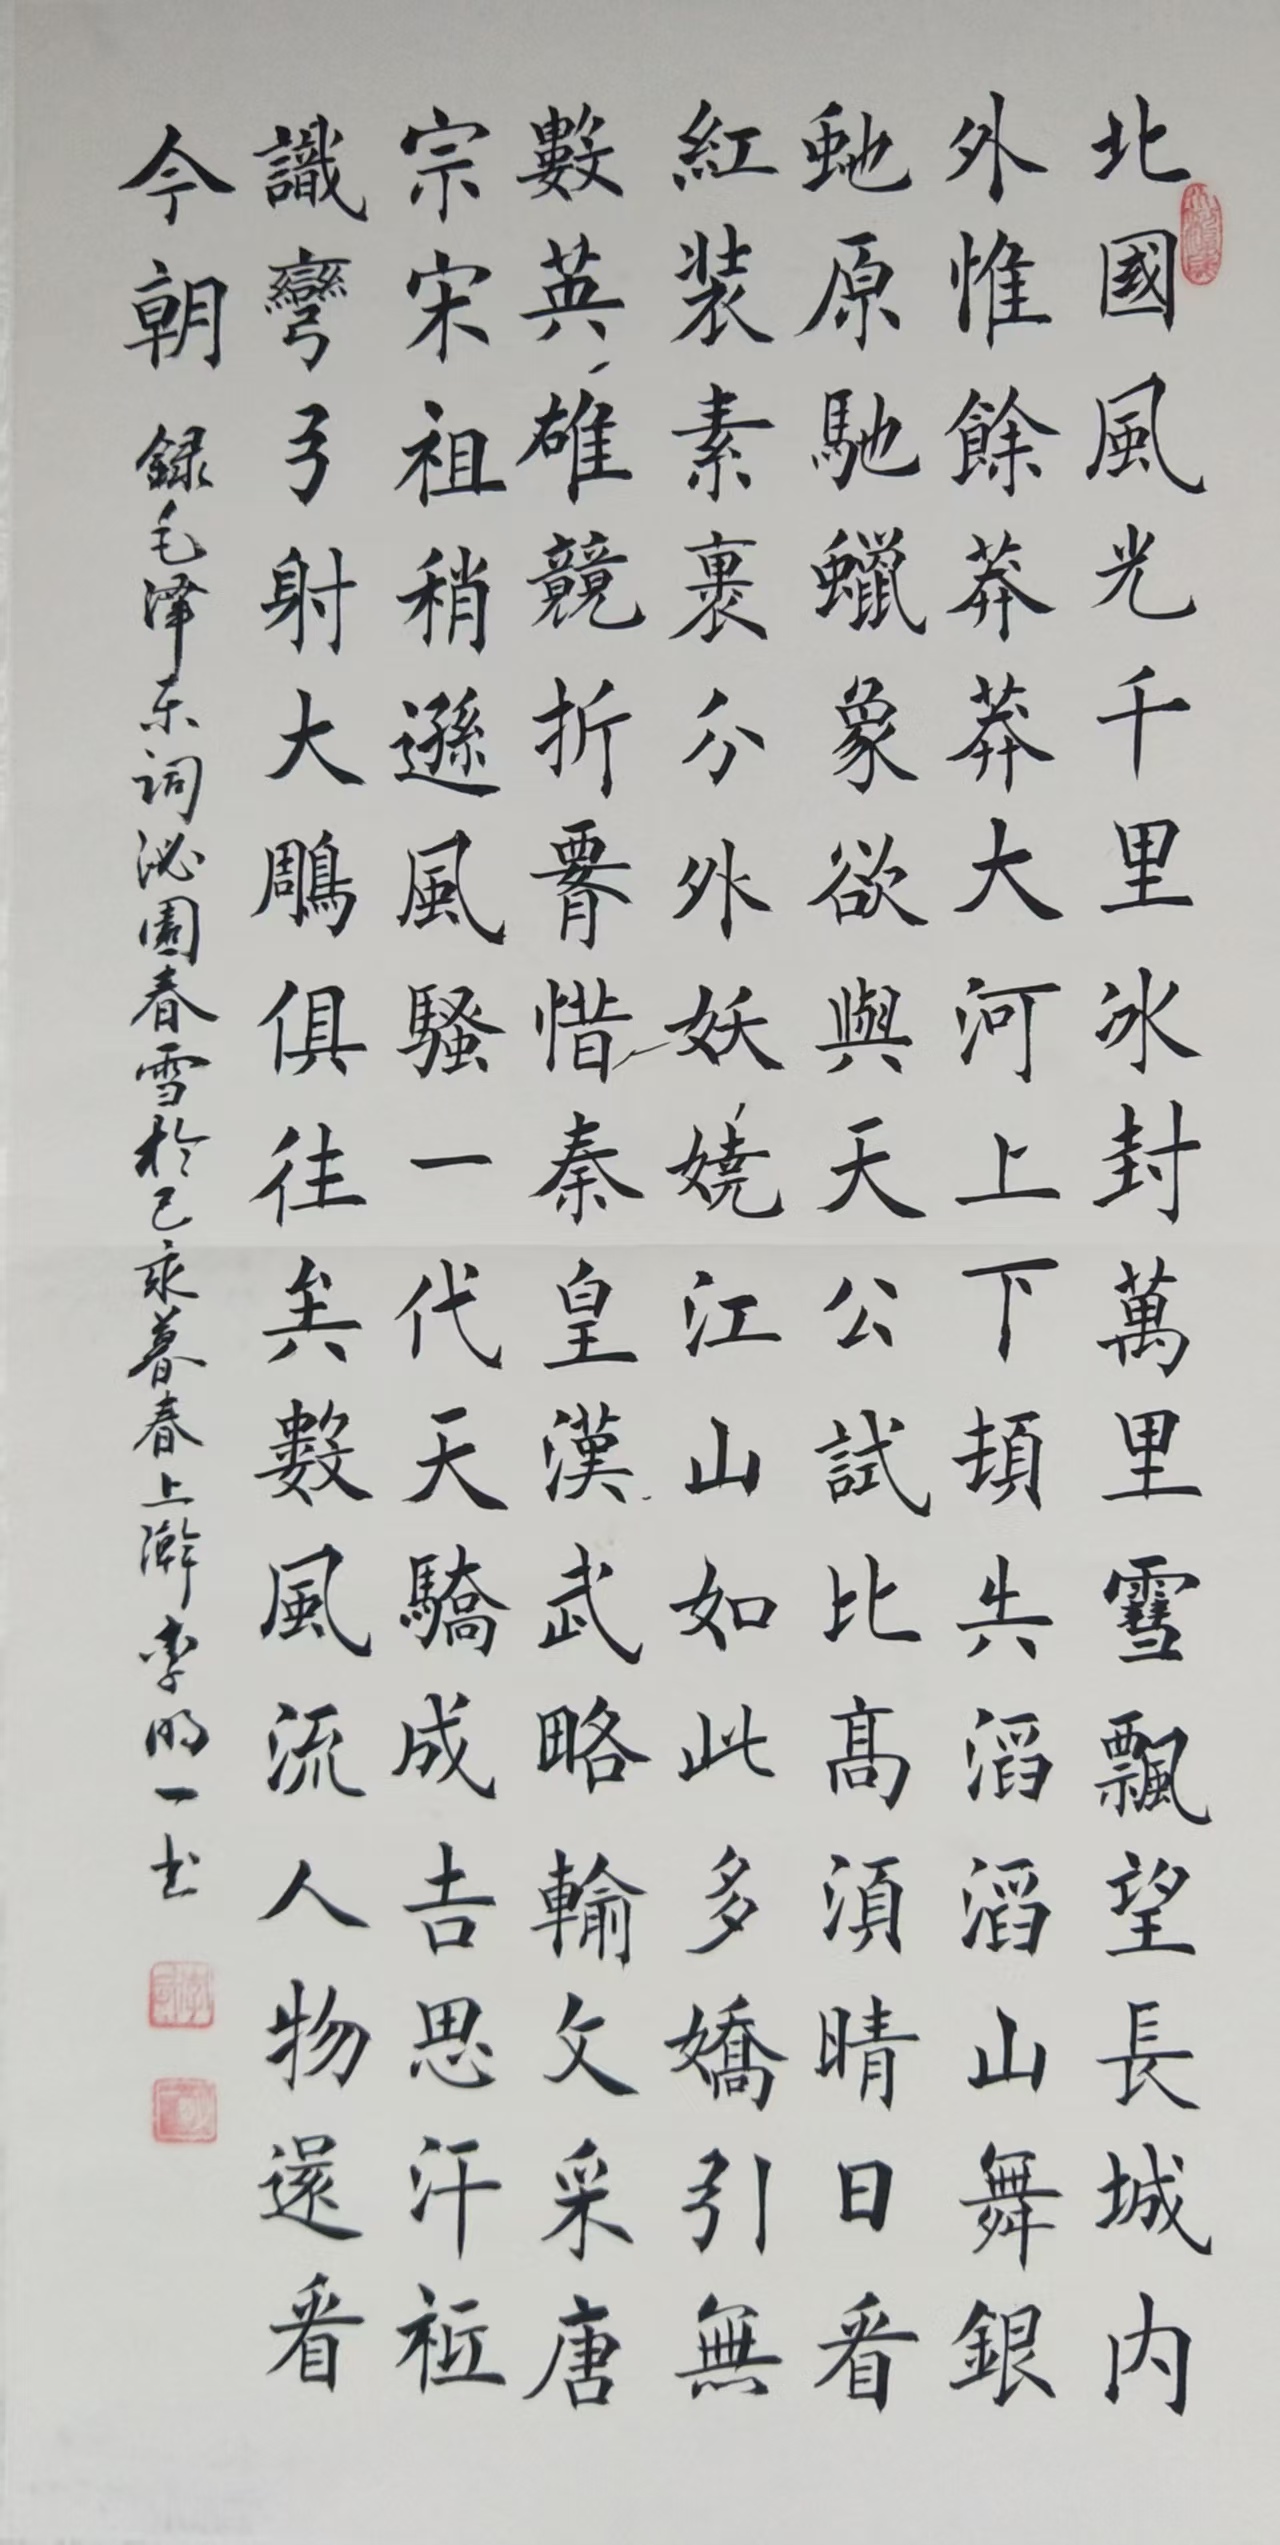 北國風光千里冰封萬里雪飄望長城内
外惟餘莽莽大河上下頓失滔滔山舞銀
虵原馳蠟象欲與天公試比高須晴日看
紅装素裹分外妖嬈江山如此多嬌引無
數英雄競折腰惜秦皇漢武略輸文采唐
宗宋祖稍遜風騷一代天驕成吉思汗祗
識彎弓射大鵰俱往矣數風流人物還看
今朝 録毛澤东词沁園春雪於己亥暮春上澣李明一书